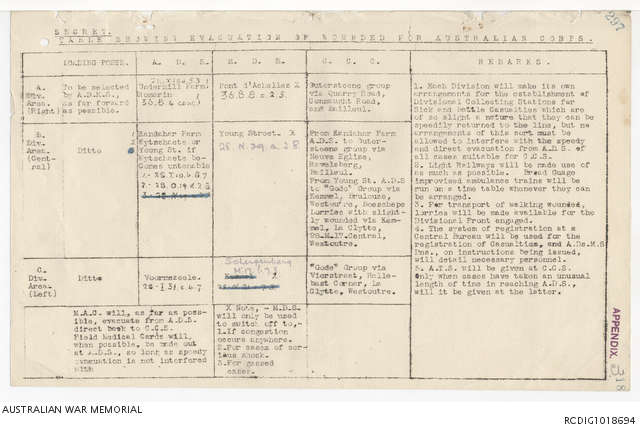 297
SECRET.
TABLE SHOWING EVACUATION OF WOUNDED FOR AUSTRALIAN CORPS.
LOADING POSTS.
A. D. S.
M. D. S.
C. C. C.
REMARKS.
A.
Div.
Area.
(Right)
To be selected
by A.D.M.S.,
as far forward
as possible.
Underhill Farm
Romarin
36.B.4
Pont d'Achelles X
36.B.8
Outersteene group
via Quarry Road,
Connaught Road,
and Bailleul.
B.
Div.
Area.
(Cent-
ral)
Ditto
Kandahar Farm
Wytschaete or
Young St. if
Wytschaete be-
comes untenable
Young Street. X
28.N.29.a.28
From Kandahar Farm
A.D.S. to Outer-
steene group via
Neuve Eglise,
Ravelsberg,
Bailleul.
From Young St. A.D.S
to "Gode" Group via
Kemmel, Brulooze,
Westoutre, Boeschepe
Lorries with slight-
ly wounded via Kem-
mel, La Clytte,
28.M.17.Central,
Westoutre.
C.
Div.
Area
(Left)
Ditto
Voormezeele.
28-I.31.c.6.7
"Gode" Group via
Vierstraat, Halle-
bast Corner, La
Clytte, Westoutre.
M.A.C. will, as far as pos-
sible, evacuate from A.D.S.
direct back to C.C.S.
Field Medical Cards will,
when possible, be made out
at A.D.S., so long as speedy
evacuation is not interfered
with
X Note, - M.D.S.
will only be used
to switch off to,-
1. If congestion
occurs anywhere.
2. For cases of ser-
ious shock.
3. For gassed
cases.
1. Each Division will make its own
arrangements for the establishment of
Divisional Collecting Stations for
Sick and Battle Casualties which are
of so slight a nature that they can be
speedily returned to the line, but no
arrangements of this sort must be
allowed to interfere with the speedy
and direct evacuation from A.D.S. of
all cases suitable for C.C.S.
2. Light Railways will be made use of
as much as possible. Broad Guage
improvised ambulance trains will be
run on a time table whenever they can
be arranged.
3. For transport of walking wounded,
lorries will be made available for the
Divisional Front engaged.
4. The system of registration at a
Central Bureau will be used for the
registration of Casualties, and A.Ds.M.S
Dns., on instructions being issued,
will detail necessary personnel.
5. A.T.S. will be given at C.C.S.
Only when cases have taken an unusual
length of time in reaching A.D.S.,
will it be given at the latter.
APPENDIX.
AUSTRALIAN WAR MEMORIAL
RCDIG1018694